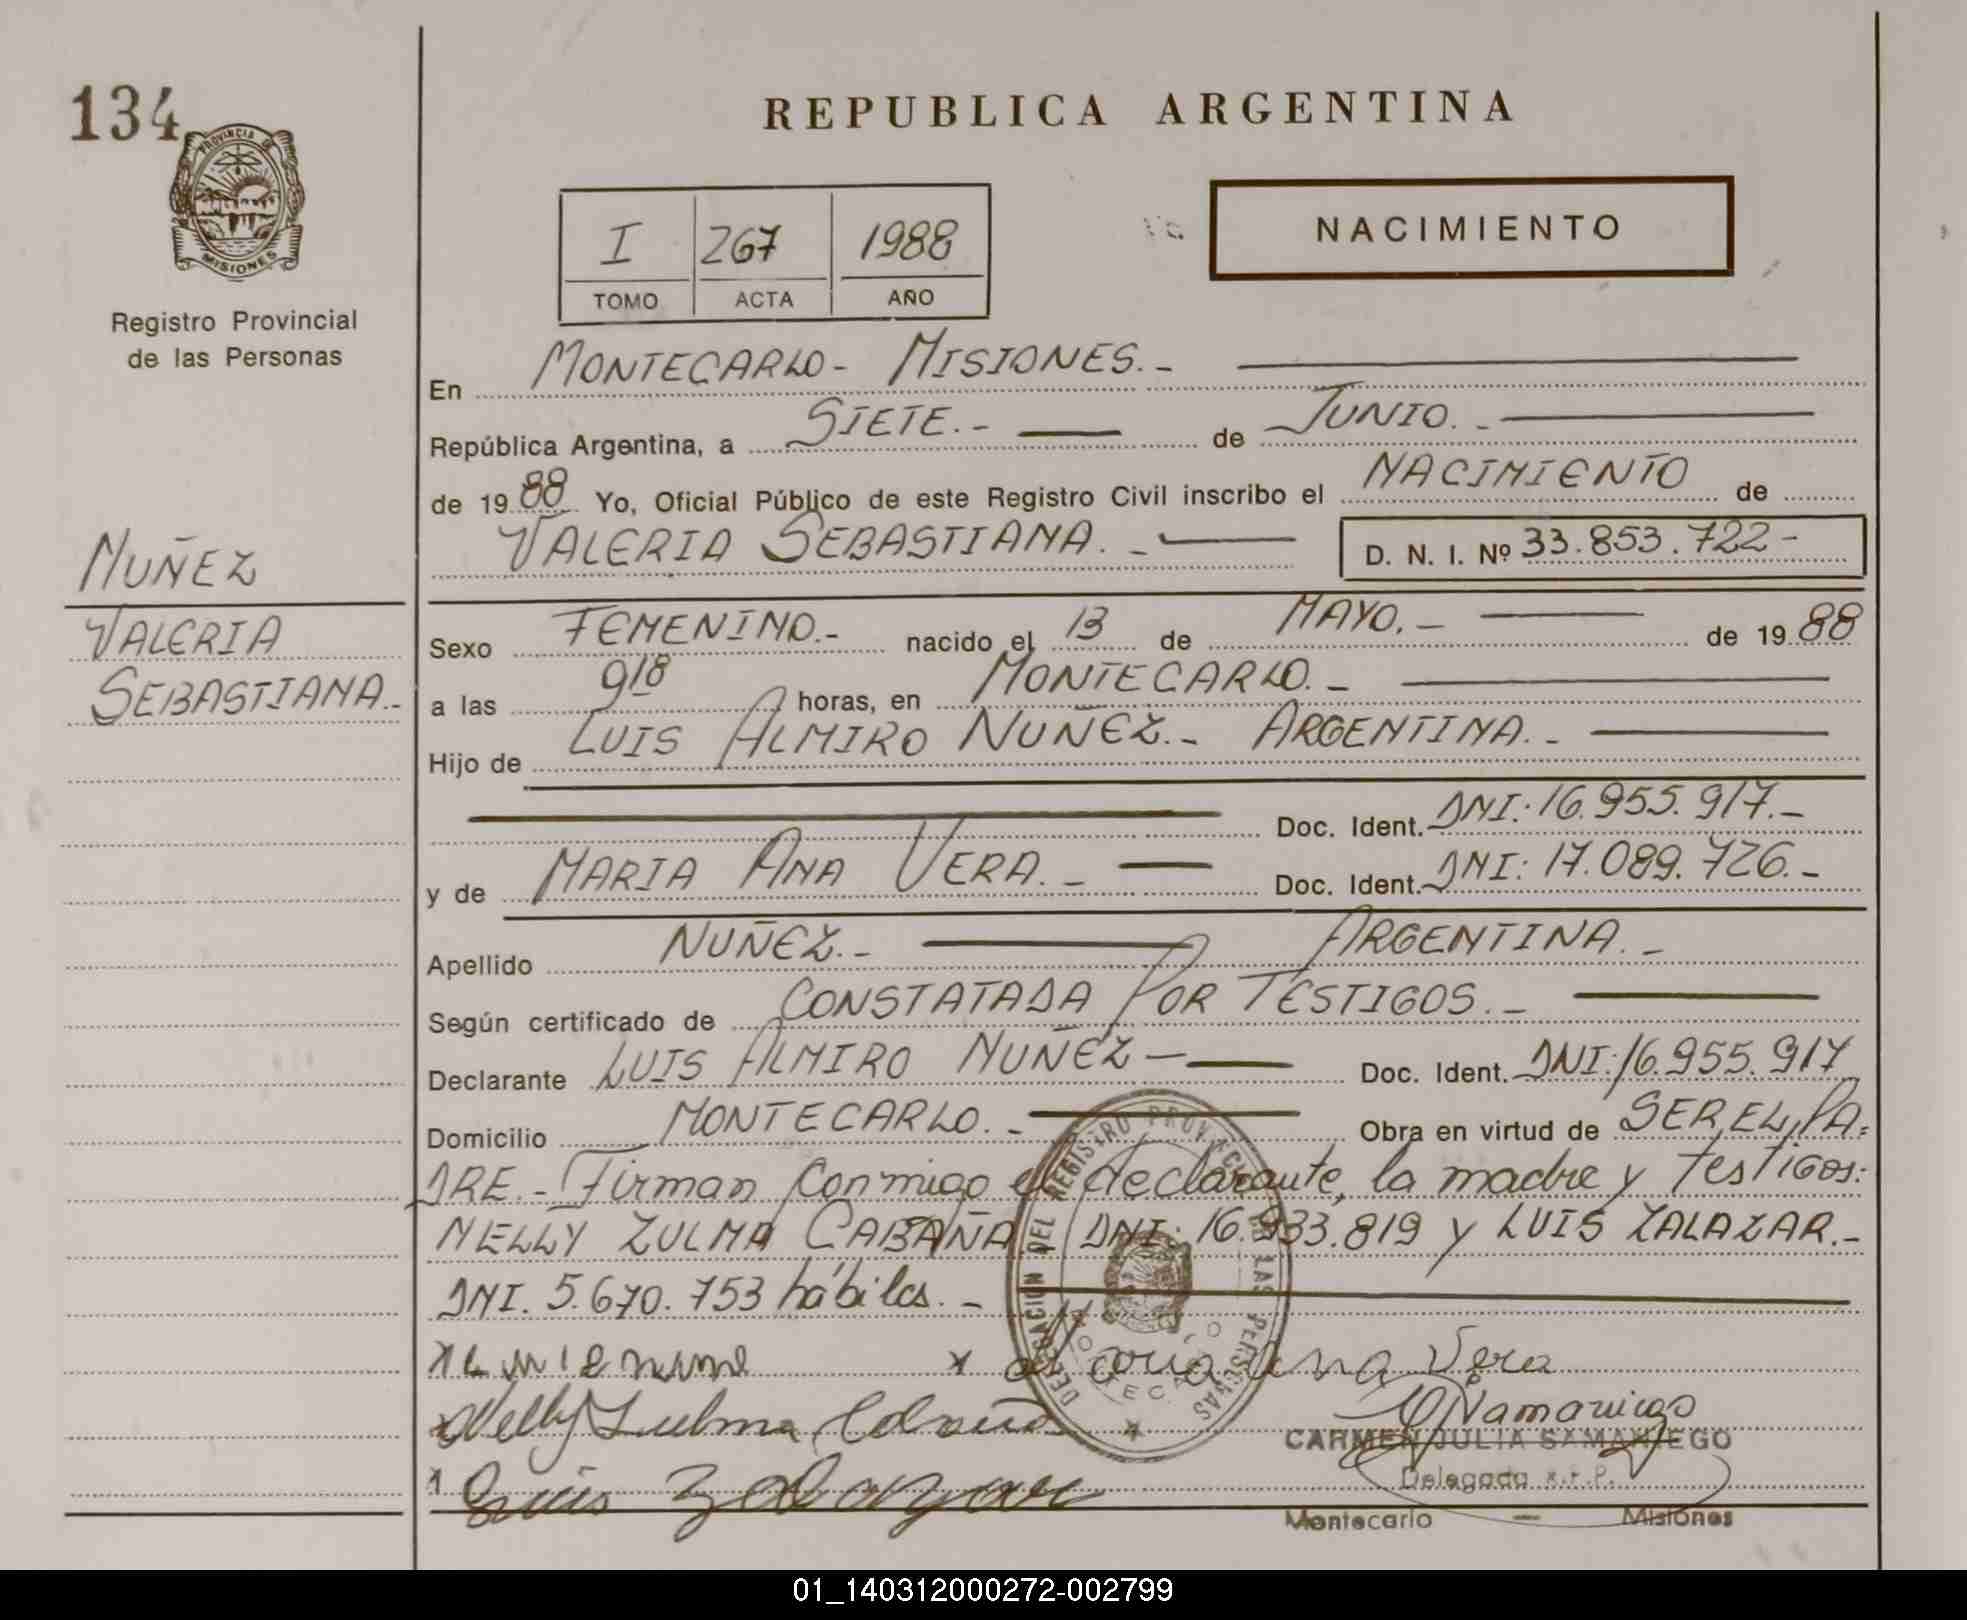 134
PROVINCIA DE
MISIONES
Registro Provincial
de las Personas
REPUBLICA ARGENTINA
I 267 1988
TOMO ACTA AÑO
NACIMIENTO
En MONTECARLO - MISIONES.-
República Argentina, a SIETE.- de JUNIO.-
de 1988 Yo, Oficial Público de este Registro Civil inscribo el NACIMIENTO de
VALERIA SEBASTIANA.- D. N. I. Nº 33.853.722-
NUÑEZ
VALERIA
SEBASTIANA.-
Sexo FEMENINO.- nacido el 13 de MAYO.- de 1988
a las 918 horas, en MONTECARLO.-
Hijo de LUIS ALMIRO NUÑEZ.- ARGENTINA.-
Doc. Ident. DNI: 16.955.917.-
y de MARIA ANA VERA.- Doc. Ident. DNI: 17.089.726.-
Apellido NUÑEZ.- ARGENTINA.-
Según certificado de CONSTATADA POR TESTIGOS.-
Declarante LUIS ALMIRO NUÑEZ - Doc. Ident. DNI: 16.955.917
Domicilio MONTECARLO.- Obra en virtud de SER EL PA=
DRE.- Firman conmigo el declarante, la madre y testigos:
NELLY ZULMA CABAÑA DNI: 16.933.819 y LUIS ZALAZAR.-
DNI. 5.670.753 hábiles.-
DELEGACION DEL REGISTRO PROVINCIAL DE LAS PERSONAS
x x Maria Ana Vera
Nelly Zulma Cabaña
Luis Zalazar
CARMEN JULIA SAMANIEGO
Delegada R.P.P.
Montecarlo — Misiones
01_140312000272-002799